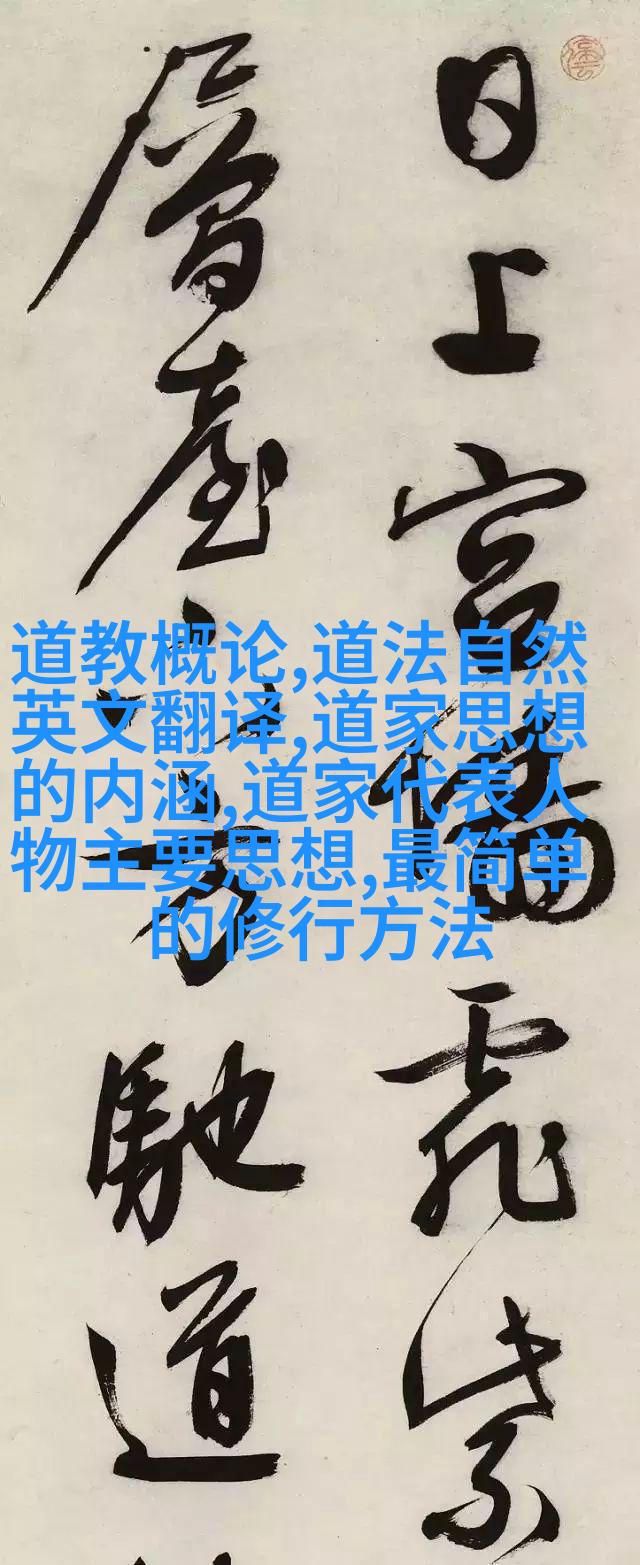 日上宫墻飛紫
層臺下方馳道
道教概论,道法自然
英文翻译,道家思想
的内涵,道家代表人
物主要思想,最简单
的修行方法